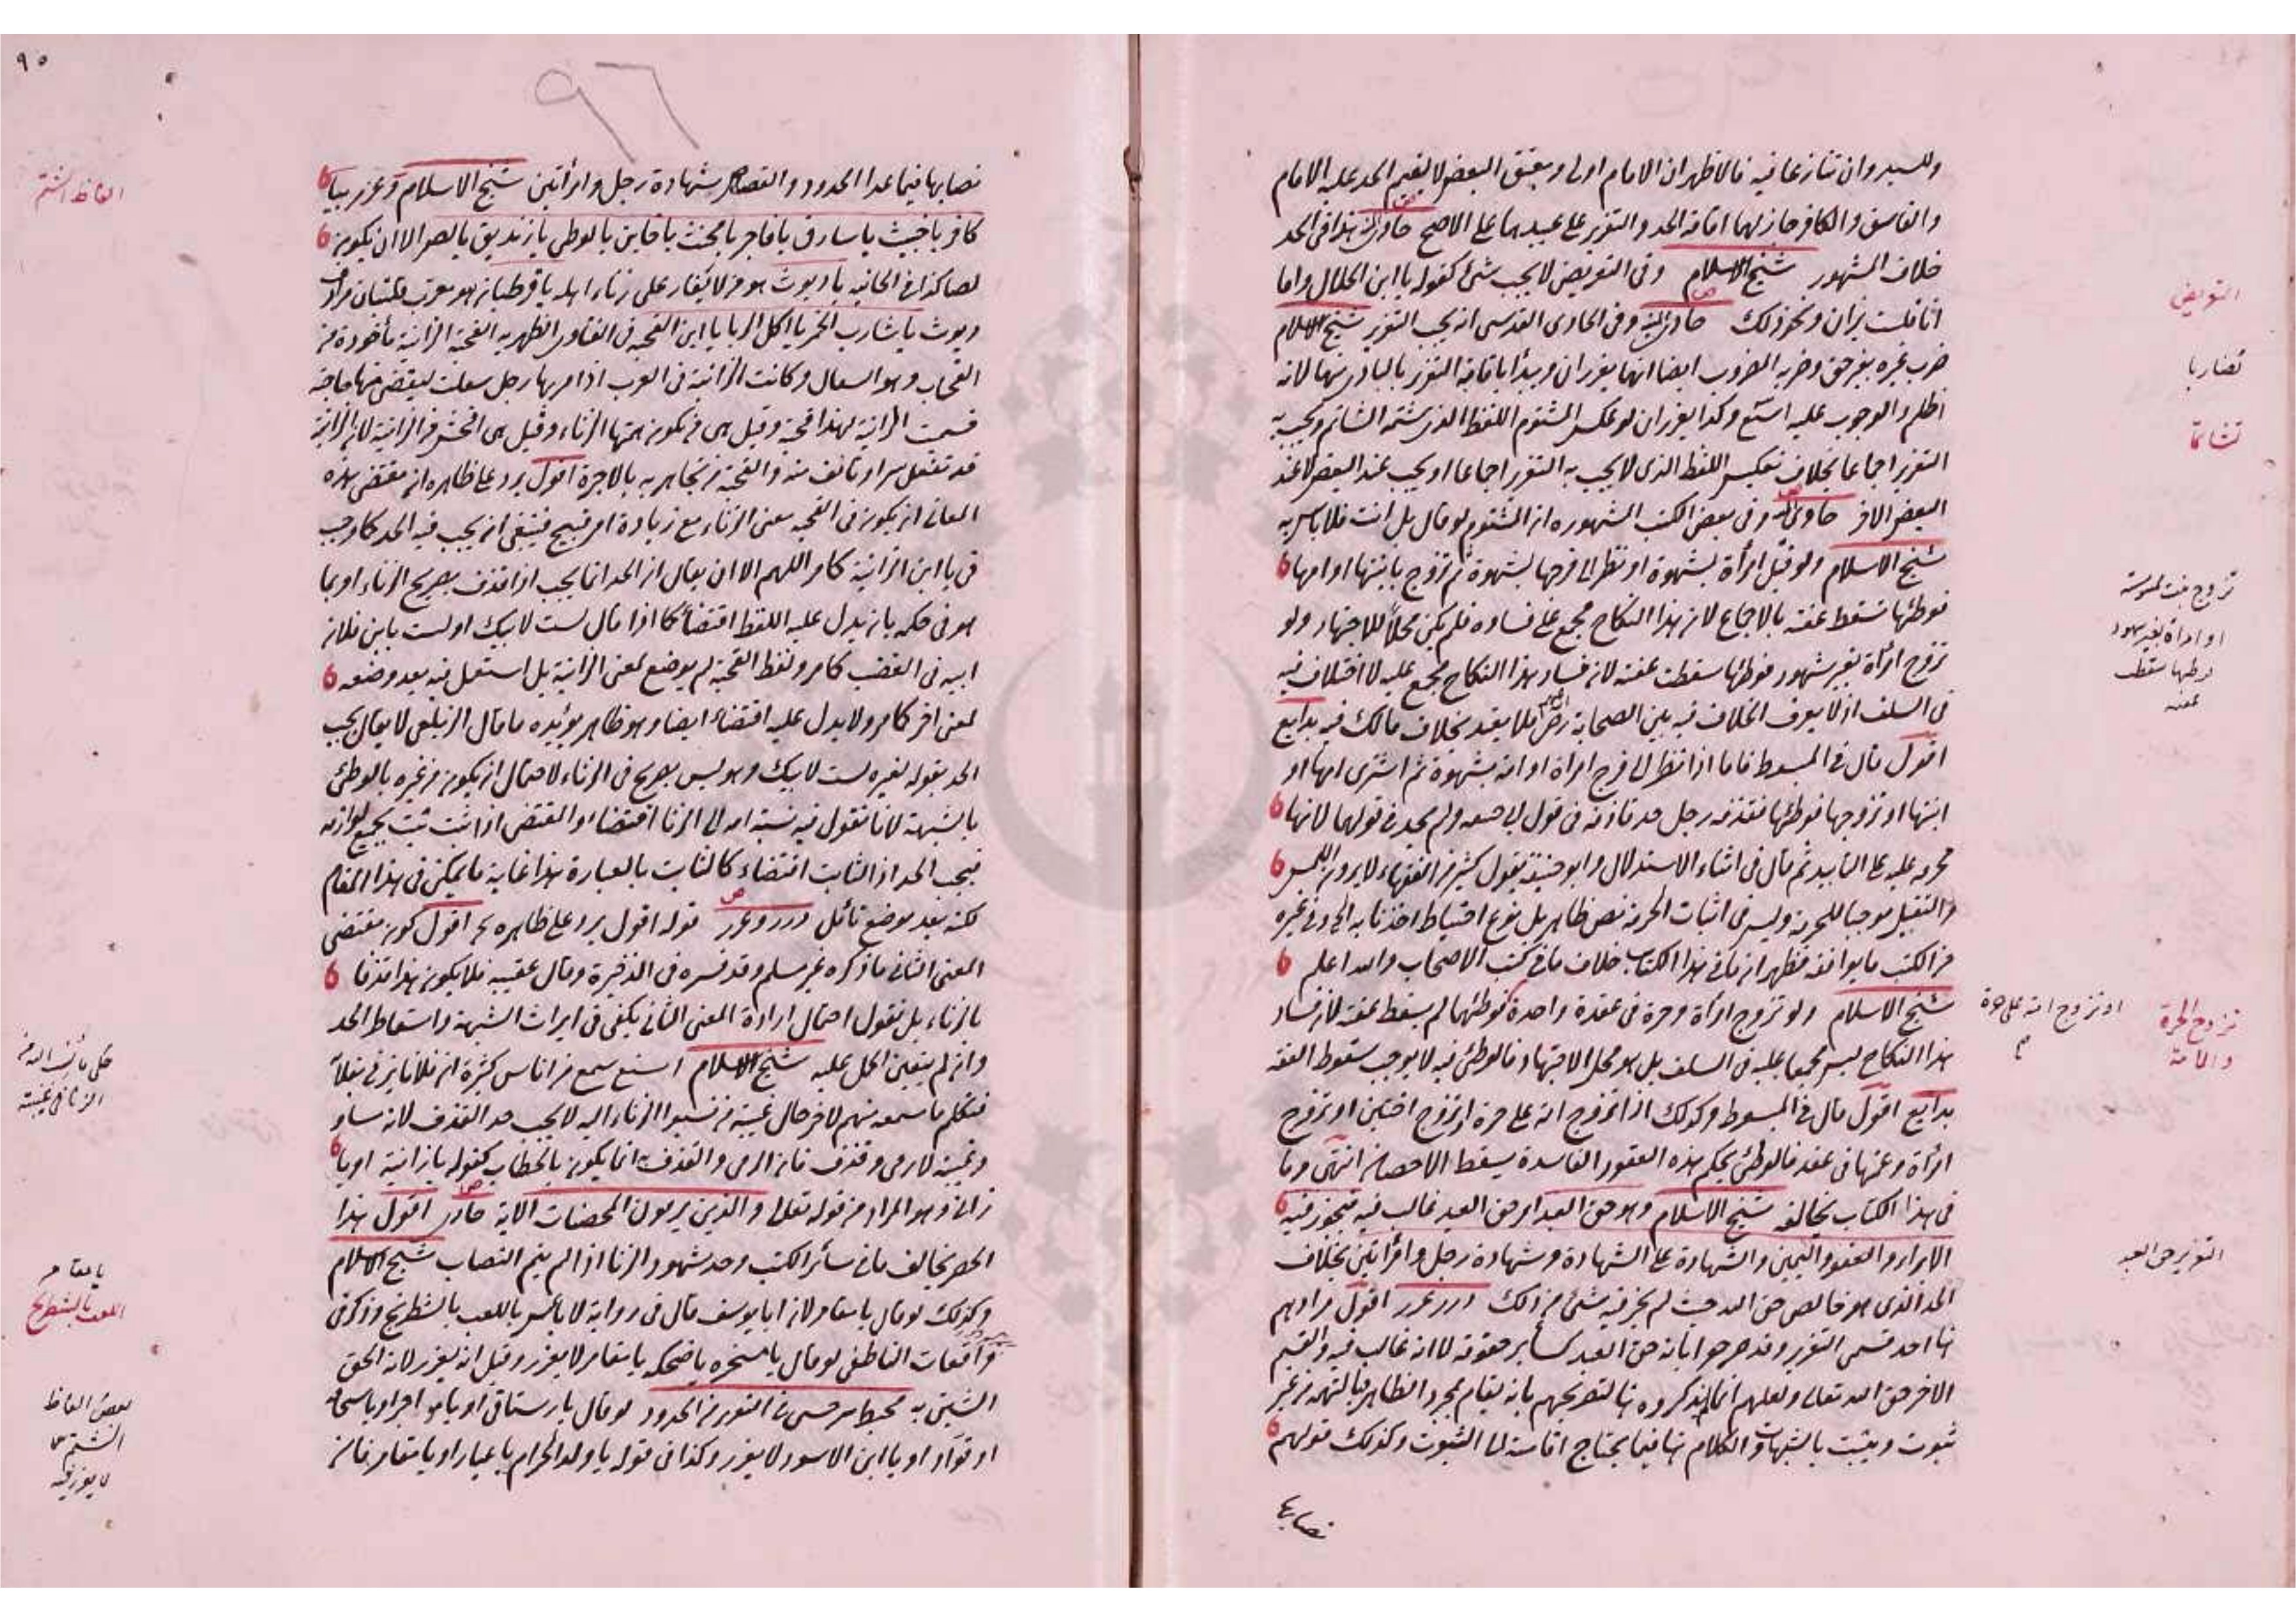 وللسيد وان تنازعا فيه فالاظهر ان الامام اولى ومعتق البعض لا يقيم الحد عليه الا الامام
والفاسق والكافر جاز لهما اقامة الحد والتعزير على عبيدهما على الاصح هذا في الحد
خلاف المشهور شيخ الاسلام وفي التعريض لا يجب شئ كقوله يا ابن الحلال واما
انا فلست بزان ونحو ذلك وفي الحاوى القدسى انه يجب التعزير شيخ الاسلام
ضرب غيره بغير حق وضربه المضروب ايضا انهما يعزران ويبدأ باقامة التعزير بالبادى منهما لانه
اظلم والوجوب عليه اسبق وكذا يعزران لو عكس المشتوم اللفظ الذى شتمه الشاتم ويجب به
التعزير اجماعا بخلاف تعكيس اللفظ الذى لا يجب به التعزير اجماعا او يجب عند البعض لا عند
البعض الاخر حاوى وفي بعض الكتب المشهوره ان المشتوم لو قال بل انت فلا باس به
شيخ الاسلام ولو قبل امرأة بشهوة او نظر الى فرجها بشهوة ثم تزوج بابنتها او امها
فوطئها تسقط عفته بالاجماع لان هذا النكاح مجمع على فساده فلم يكن محلا للاجتهاد ولو
تزوج امرأة بغير شهود فوطئها سقطت عفته لان فساد هذا النكاح مجمع عليه لا اختلاف فيه
في السلف اذ لا يعرف الخلاف فيه بين الصحابة رض فلا يعتد بخلاف مالك فيه بدايع
اقول قال في المبسوط فاما اذا نظر الى فرج امراة او امة بشهوة ثم اشترى امها او
ابنتها او تزوجها فوطئها فقذفه رجل حد قاذفه في قول ابي حنيفه ولم يحد في قولهما لانها
محرمه عليه على التابيد ثم قال في اثناء الاستدلال وابو حنيفة يقول كثير من الفقهاء لا يرون اللمس
والتقبيل موجبا للحرمة وليس في اثبات الحرمة نص ظاهر بل نوع احتياط اخذنا به
من الكتب ما يوافقه فظهر ان ما في هذا الكتاب خلاف ما في كتب الاصحاب والله اعلم
شيخ الاسلام ولو تزوج امرأة وحرة في عقدة واحدة فوطئهما لم يسقط عفته لان فساد
هذا النكاح ليس مجمعا عليه في السلف بل هو محل الاجتهاد فالوطئ فيه لا يوجب سقوط العفة
بدايع اقول قال في المبسوط وكذلك اذا تزوج امة على حرة او تزوج اختين او تزوج
امرأة وعمتها في عقد فالوطئ بحكم هذه العقود الفاسدة يسقط الاحصان انتهى وما
في هذا الكتاب يخالفه شيخ الاسلام وهو حق العبد اى حق العبد غالب فيه فيجوز فيه
الابراء والعفو واليمين والشهادة على الشهادة وشهادة رجل وامرأتين بخلاف
الحد الذى هو خالص حق الله حيث لم يجز فيه شئ من ذلك درر غرر اقول مرادهم
هنا احد قسمى التعزير وقد صرحوا بانه حق العبد كسائر حقوقه لا انه غالب فيه والقسم
الاخر حق الله تعالى ولعلهم انما لم يذكروه هنا لتصريحهم بانه يقام بمجرد الظاهر فبالتهمه من غير
ثبوت ويثبت بالشبهات والكلام هنا فيما يحتاج اقامته الى الثبوت وكذلك قولهم
نصابها
التعريض
تضاربا
تشاتما
تزوج بنت لمسوسته
او امراة بغير شهود
وطئها سقطت
عفته
تزوج الحرة
والامة
او تزوج امة على حرة
التعزير حق العبد
٩٥
٩٦
نصابها فيما عدا الحدود والقصاص شهادة رجل وامرأتين شيخ الاسلام وعزر بيا
كافر يا خبيث يا سارق يا فاجر يا مخنث يا خاين يا لوطى يا زنديق يا لص الا ان يكون
لصا كذا في الخانيه يا ديوث هو من لا يغار على زناء اهله يا قرطبان هو معرب قلتبان مرادف
ديوث يا شارب الخمر يا اكل الربا يا ابن القحبه في الفتاوى الظهيريه القحبة الزانية مأخوذة من
القحاب وهو السعال وكانت الزانية في العرب اذا مر بها رجل سعلت ليقضى منها حاجته
فسميت الزانية لهذا قحبة وقيل هى من تكون همتها الزناء وقيل هى افحش من الزانية لان الزانية
قد تفعل سرا وتانف منه والقحبة من تجاهر به بالاجرة اقول يرد على ظاهره ان مقتضى هذه
المعانى ان يكون في القحبه معنى الزناء مع زيادة امر قبيح فينبغى ان يجب فيه الحد كما وجب
في يا ابن الزانية كما مر اللهم الا ان يقال ان الحد انما يجب اذا قذف بصريح الزناء او بما
هو في حكمه بان يدل عليه اللفظ اقتضاء كما اذا قال لست لابيك او لست بابن فلان
ابيه في الغضب كما مر ولفظ القحبة لم يوضع لمعنى الزانية بل استعمل فيه بعد وضعه
لمعنى اخر كما مر ولا يدل عليه اقتضاء ايضا وهو ظاهر يؤيده ما قال الزيلعى لا يقال يجب
الحد بقوله لغيره لست لابيك وهو ليس بصريح في الزناء لاحتمال ان يكون من غيره بالوطئ
بالشبهة لانا نقول فيه نسبة امه الى الزنا اقتضاء والمقتضى اذا ثبت ثبت بجميع لوازمه
فيجب الحد اذ الثابت اقتضاء كالثابت بالعبارة هذا غاية ما يمكن في هذا المقام
لكنه بعد موضع تأمل درر وغرر قوله اقول يرد على ظاهره الخ اقول كون مقتضى
المعنى الثانى ما ذكره غير مسلم وقد فسره في الذخيرة وقال عقيبه فلا يكون هذا قذفا
بالزناء بل نقول احتمال ارادة المعنى الثانى يكفى في ايراث الشبهة واسقاط الحد
وان لم يتعين الحمل عليه شيخ الاسلام سمع من اناس كثيرة ان فلانا يزنى بفلانة
فتكلم ما سمعه منهم لاخر حال غيبته من نسبوا الزناء اليه لا يجب حد القذف لانه
وغيبة لا رمى وقذف فان الرمى والقذف انما يكون بالخطاب كقوله يا زانية او يا
زانى وهو المراد من قوله تعالى والذين يرمون المحصنات الاية حاوى اقول هذا
الحصر يخالف ما في سائر الكتب وحد شهود الزنا اذا لم يتم النصاب شيخ الاسلام
وكذلك لو قال يا مقامر لان ابا يوسف قال في رواية لا باس باللعب بالشطرنج وذكر في
واقعات الناطفى لو قال يا مسخره يا ضحكه يا مقامر لا يعزر وقيل انه يعزر لانه الحق
الشين به محيط سرخسى في التعزير من الحدود لو قال يا رستاقى او يا مواجر او يا
او قواد او يا ابن الاسود لا يعزر وكذا في قوله يا ولد الحرام يا عيار او يا مقامر فان
الفاظ الشتم
الزنا في غيبته
يا مقامر
اللعب بالشطرنج
بعض الفاظ
الشتم
لا يعزر فيه